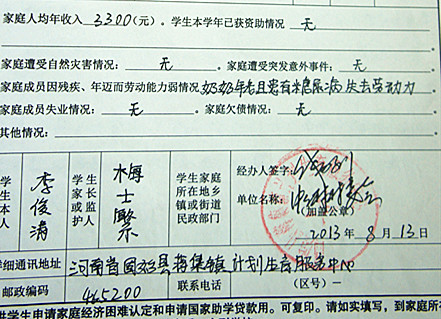 家庭人均年收入 3300(元)。学生本学年已获资助情况: 无
家庭遭受自然灾害情况: 无 家庭遭受突发意外事件: 无
家庭成员因残疾、年迈而劳动能力弱情况: 奶奶年老且患有糖尿病 失去劳动力
家庭成员失业情况: 无 家庭欠债情况: 无
其他情况:
学生本人 李俊清
学生家长或监护人 梅士繁
学生家庭所在地乡镇或街道民政部门
经办人签字:
单位名称:
(加盖公章)
2013年 8月 13日
详细通讯地址 河南省固始县蒋集镇计划生育服务中心
邮政编码 465200 联系电话 (区号) -
供学生申请家庭经济困难认定和申请国家助学贷款用。可复印。请如实填写,到家庭所